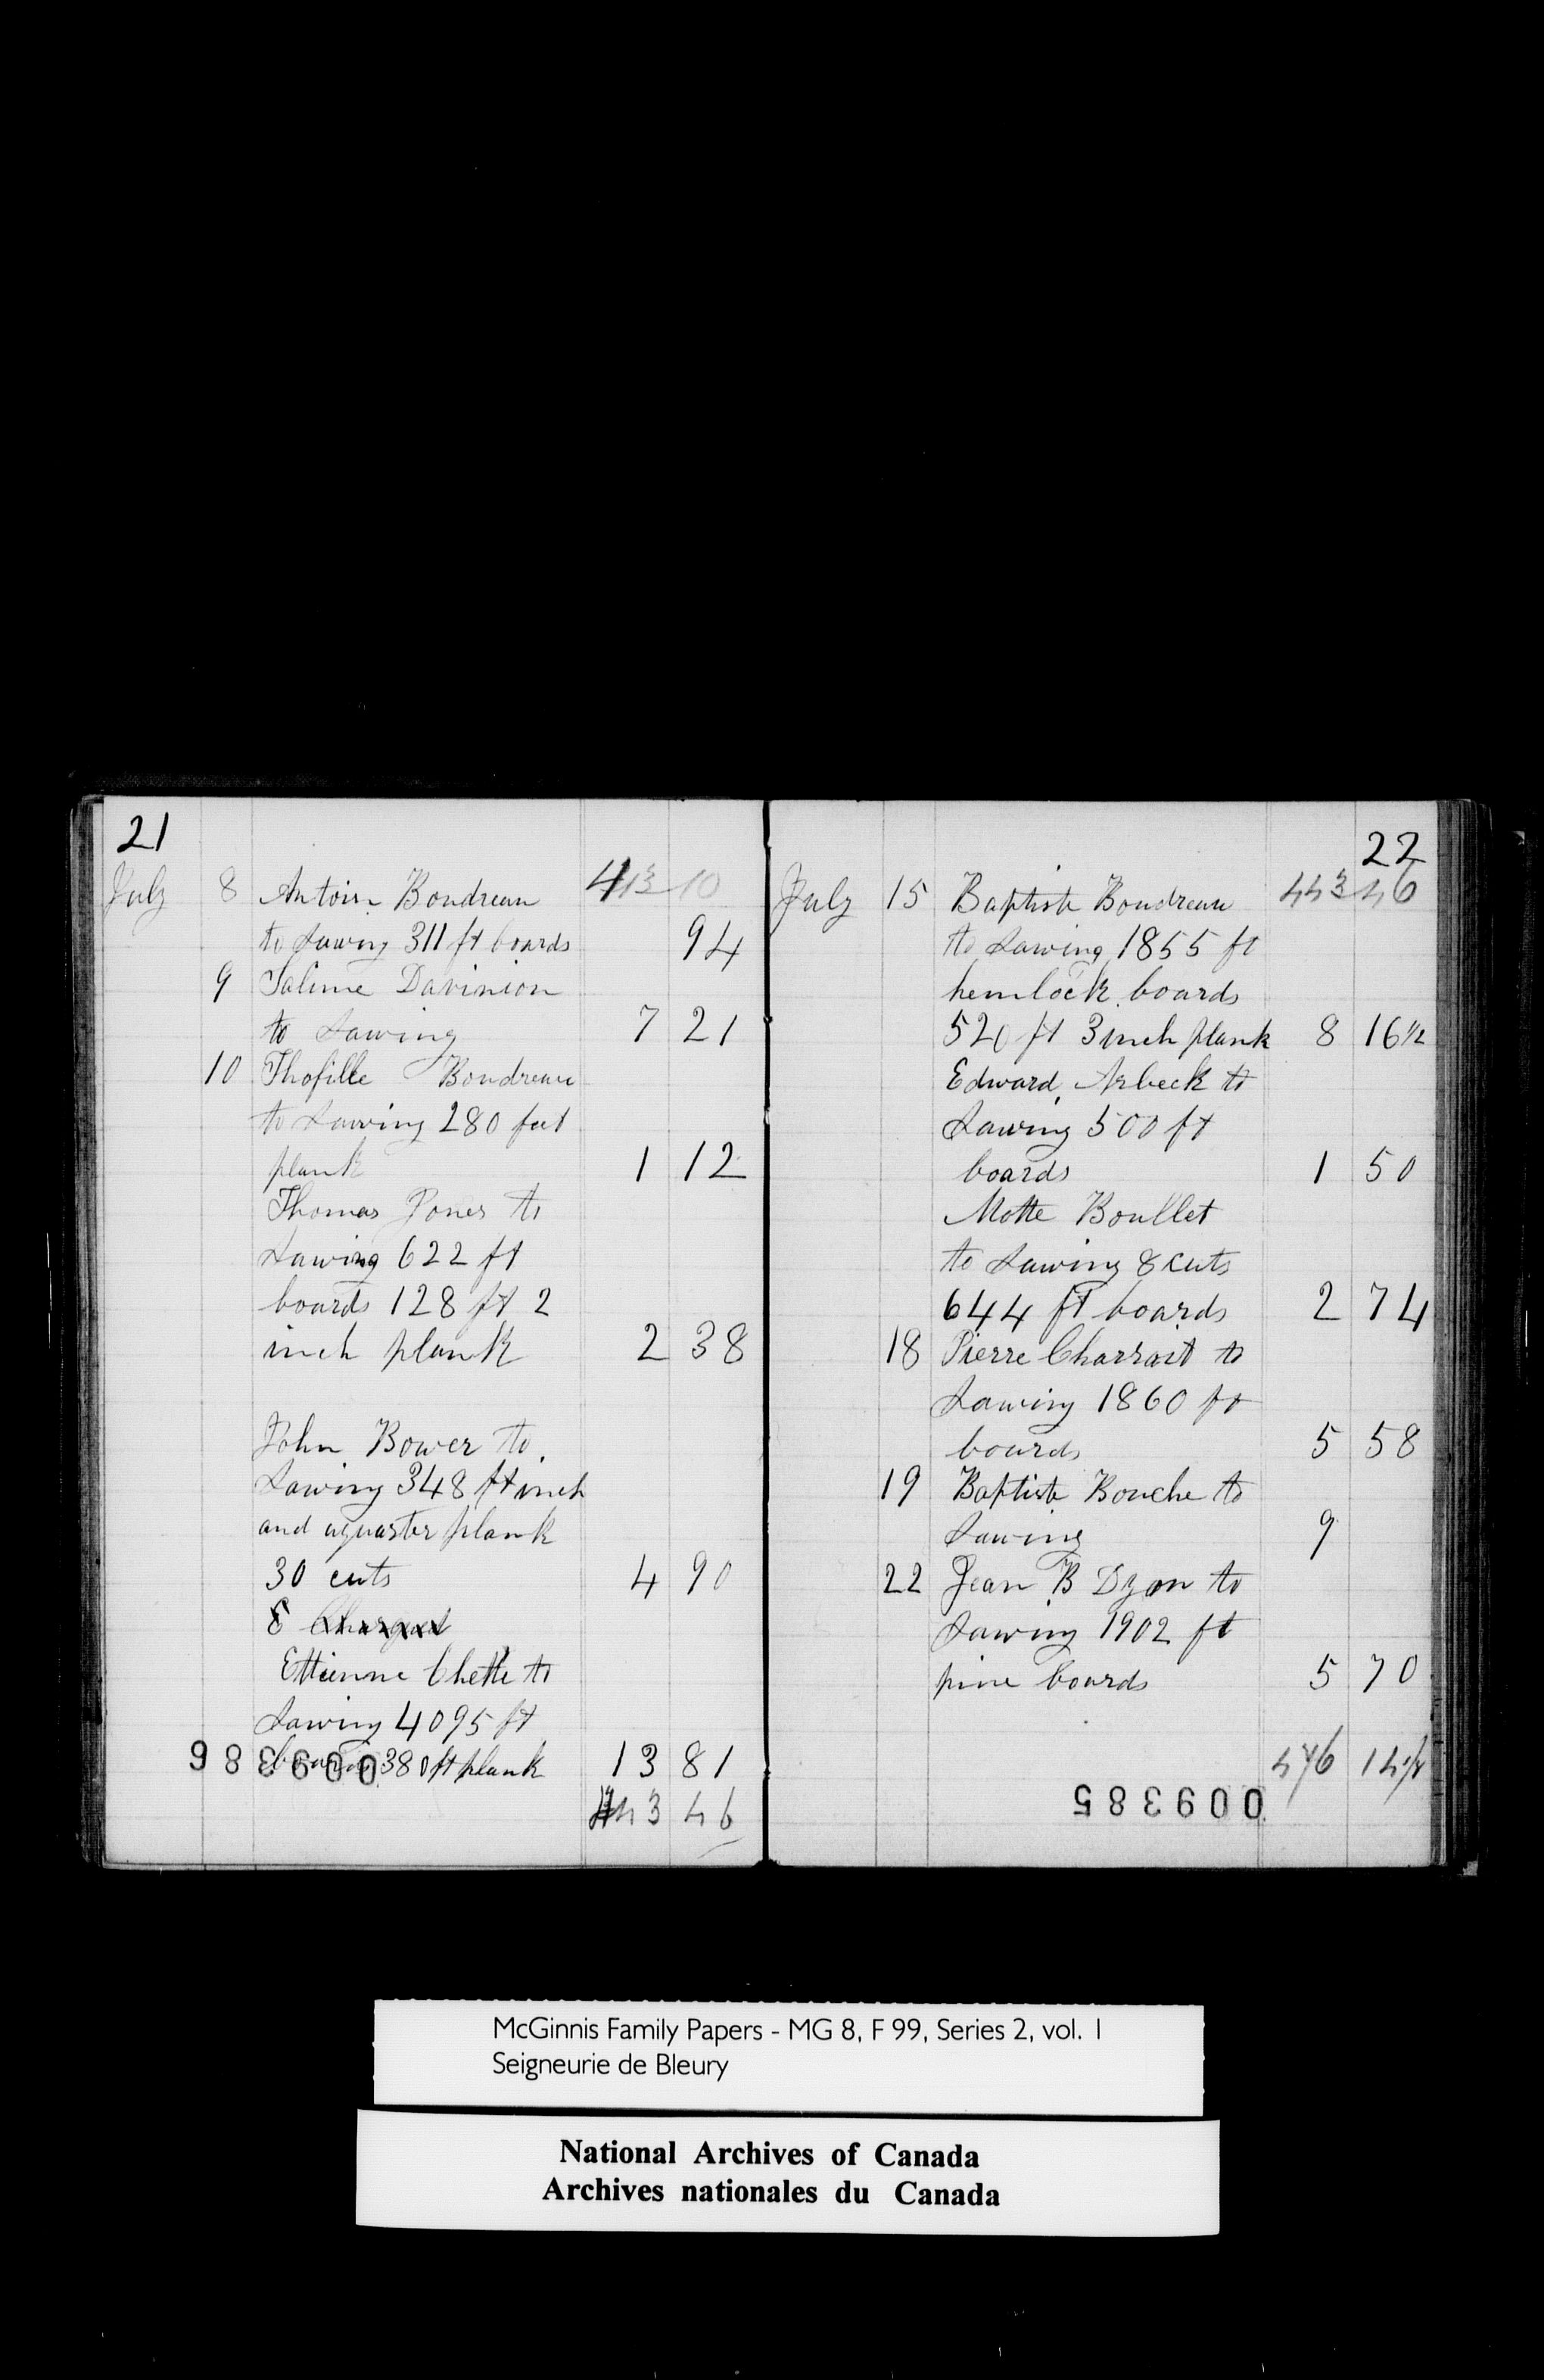 21
July 8 Antoin Boudreau 413 10
to Sawing 311 ft boards 94
9 Salime Davinion
to Sawing 7 21
10 Thofille Boudreau
to Sawing 280 feet
plank 1 12
Thomas Jones to
Sawing 622 ft
boards 128 ft 2
inch plank 2 38
John Bower to
Sawing 348 ft inch
and aquarter plank
30 cuts 4 90
E Charged
Ettienne Chette to
Sawing 4095 ft
boards 380 ft plank 13 81
009386
443 46
22
July 15 Baptiste Boudreau 443 46
to Sawing 1855 ft
hemlock boards
520 ft 3 inch plank 8 16 1/2
Edward Arbeck to
Sawing 500 ft
boards 1 50
Motte Boullet
to Sawing 8 cuts
644 ft boards 2 74
18 Pierre Charrait to
Sawing 1860 ft
boards 5 58
19 Baptiste Bouche to
Sawing 9
22 Jean B Dzon to
Sawing 1902 ft
pine boards 5 70
476 14 1/2
009385
McGinnis Family Papers - MG 8, F 99, Series 2, vol. 1
Seigneurie de Bleury
National Archives of Canada
Archives nationales du Canada